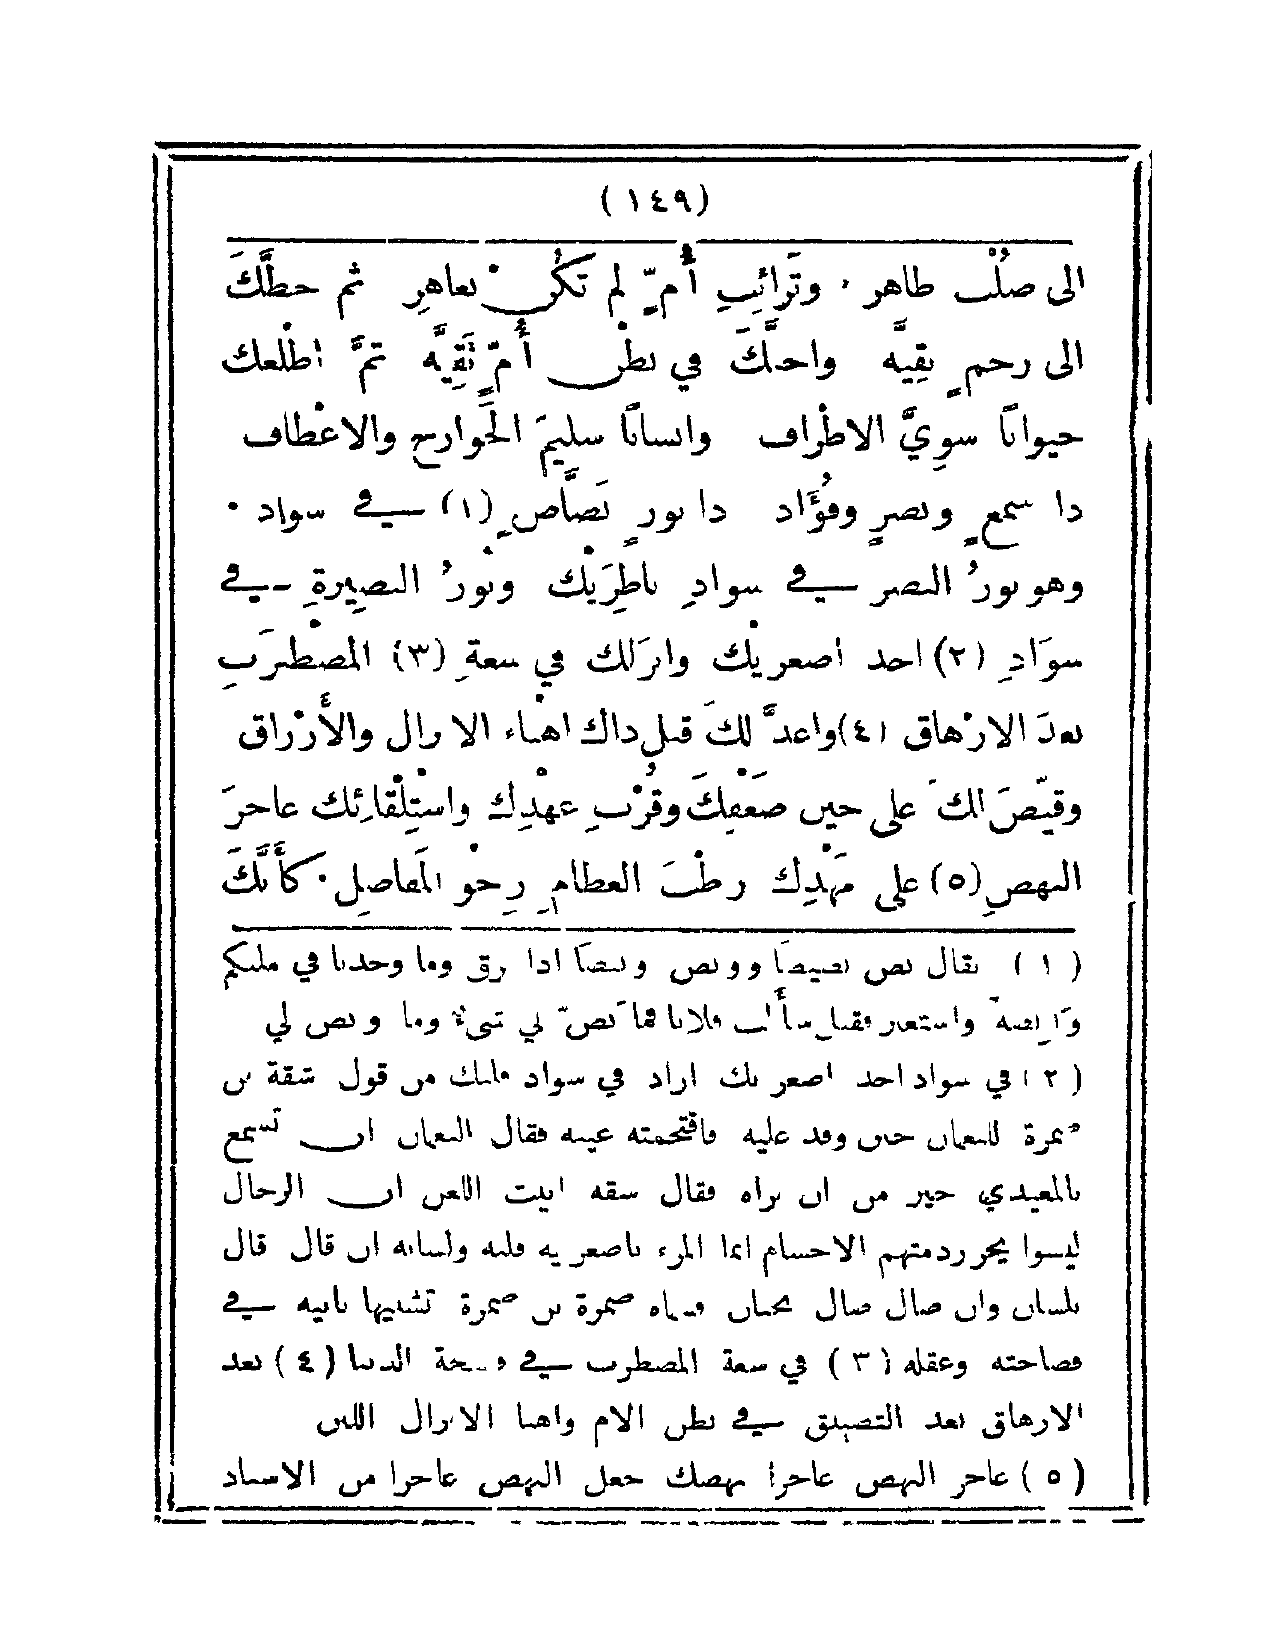 (١٤٩)
الى صُلْب طاهر . وتَرائِبِ أُمٍّ لم تَكُنْ بعاهِرِ ثم حطَّكَ
الى رحمٍ نقِيَّه واحلَّكَ في بطْنِ أُمٍّ تَقِيَّه ثمَّ اطْلعك
حيوانًا سوِيَّ الاطْراف وانسانًا سليمَ الجَوارح والاعْطاف
ذا سمعٍ وبصرٍ وفُؤَاد ذا نورٍ بَصَّاصٍ (١) في سواد .
وهو نورُ البصر في سوادِ ناظِرَيْك ونُورُ البصِيرةِ في
سوَادِ (٢) احد اصْغريك وانزَلك في سعةِ (٣) المضْطرَبِ
بعدَ الارْهاق (٤) واعدَّ لكَ قبل ذاك اهْناء الانزال والأَرْزاق
وقيَّضَ لكَ على حين ضَعْفِكَ وقُرْبِ عهْدِك واسْتِلْقائِك عاجزَ
النهضِ (٥) على مَهْدِك رطْبَ العظامِ رِخْوَ المَفاصِلِ . كأَنَّكَ
(١) يقال بص بصيصًا ووبص وبيصًا اذا برق وما وجدنا في مليكم
وابصة واستعير فقيل سأَلت فلانا فما بَصّ لي بشيء وما وبص لي
(٢) في سواد احد اصغريك اراد في سواد قلبك من قول شقة بن
ضمرة للنعمان حين وفد عليه فاقتحمته عينه فقال النعمان ان تسمع
بالمعيدي خير من ان تراه فقال شقه ابيت اللعن ان الرجال
ليسوا بجزر دمتهم الاجسام انما المرء باصغريه قلبه ولسانه ان قال قال
بلسان وان صال صال بجنان فسماه ضمرة بن ضمرة تشبيها بابيه في
فصاحته وعقله (٣) في سعة المضطرب في فسحة الدنيا (٤) بعد
الارهاق بعد التضييق في بطن الام واهنا الانزال اللبن
(٥) عاجز النهض عاجزا نهضك جعل النهض عاجزا من الاسناد